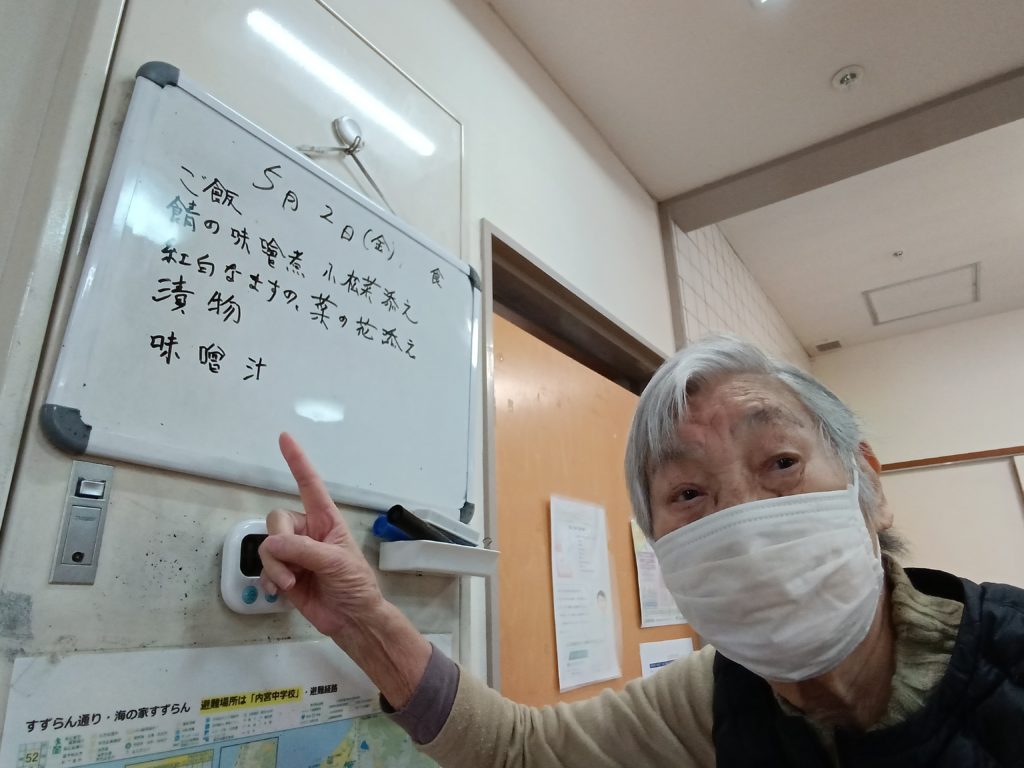 5月2日(金).食
ご飯
鯖の味噌煮 小松菜添え
紅白なますの、菜の花添え
漬物
味噌汁
すずらん通り・海の家すずらん
避難場所は「内宮中学校」・避難経路
52